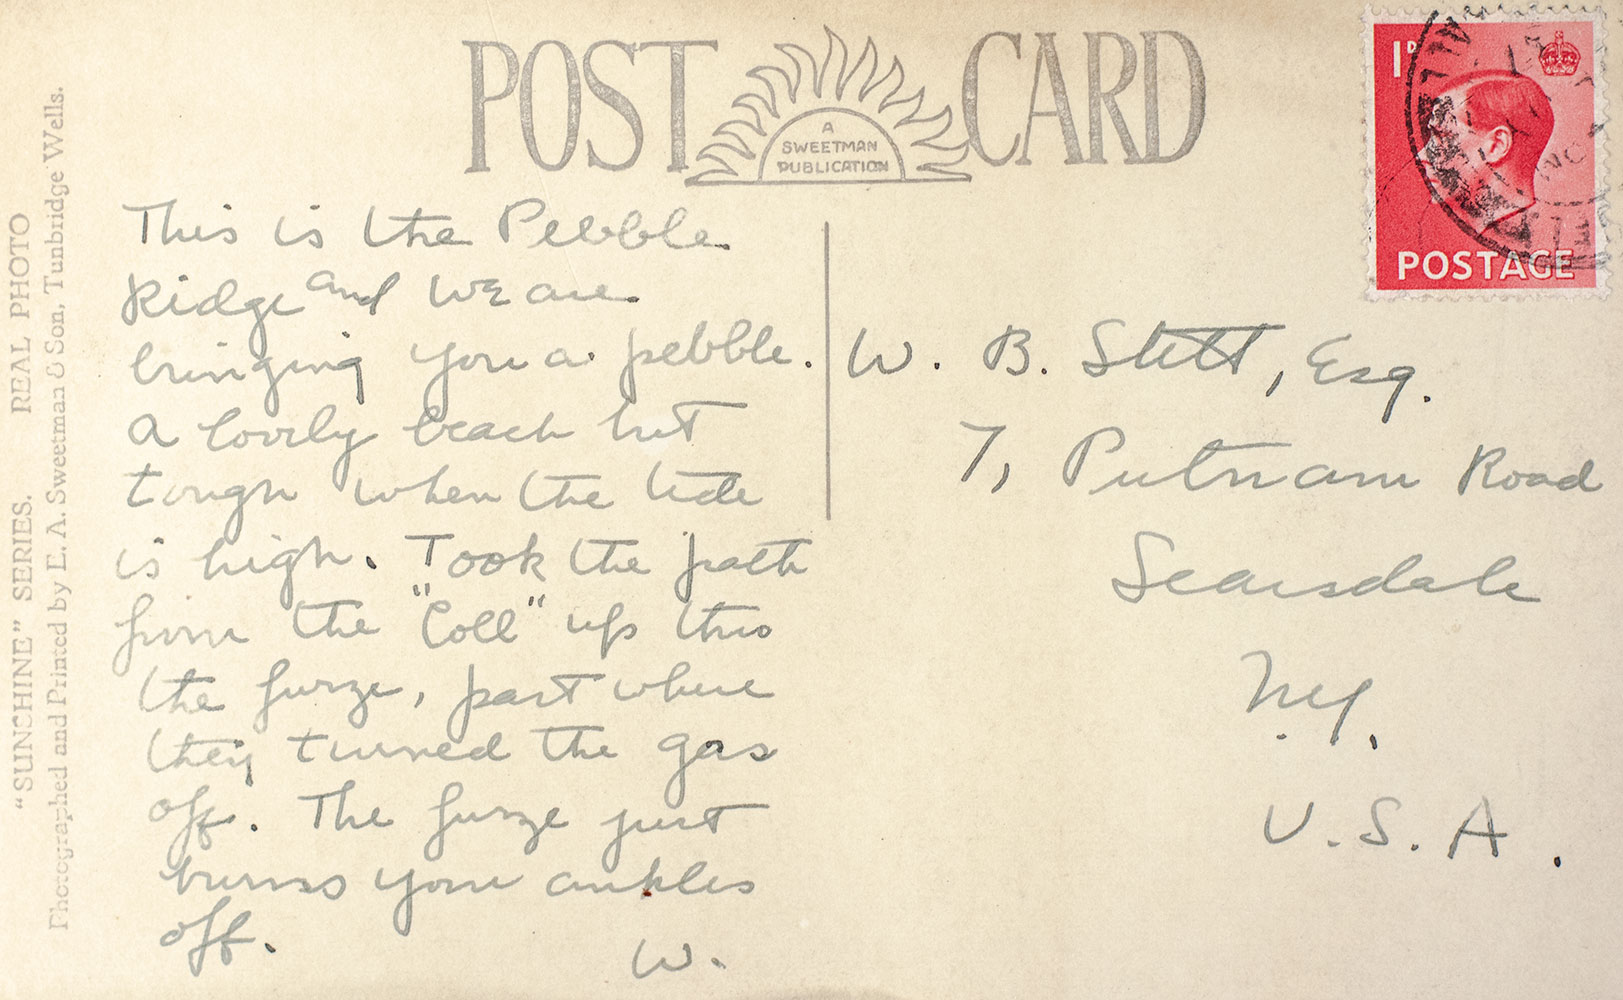 POST CARD
A
SWEETMAN
PUBLICATION
1D
POSTAGE
"SUNSHINE" SERIES. REAL PHOTO
Photographed and Printed by E. A. Sweetman & Son, Tunbridge Wells.
This is the Pebble
Ridge and we are
bringing you a pebble.
A lovely beach but
tough when the tide
is high. Took the path
from the "Coll" up thro
the furze, part where
they turned the gas
off. The furze just
burns your ankles
off.
W.
W. B. Stett, Esq.
7, Putnam Road
Scarsdale
N.Y.
U.S.A.